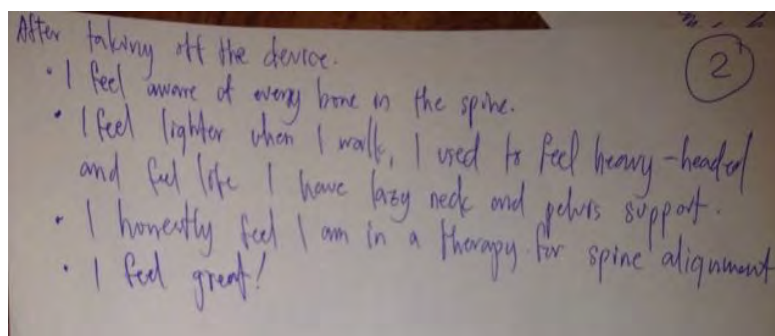 After taking off the device.
2
• I feel aware of every bone in the spine.
• I feel lighter when I walk, I used to feel heavy-headed
and feel like I have lazy neck and pelvis support.
• I honestly feel I am in a therapy for spine alignment
• I feel great!